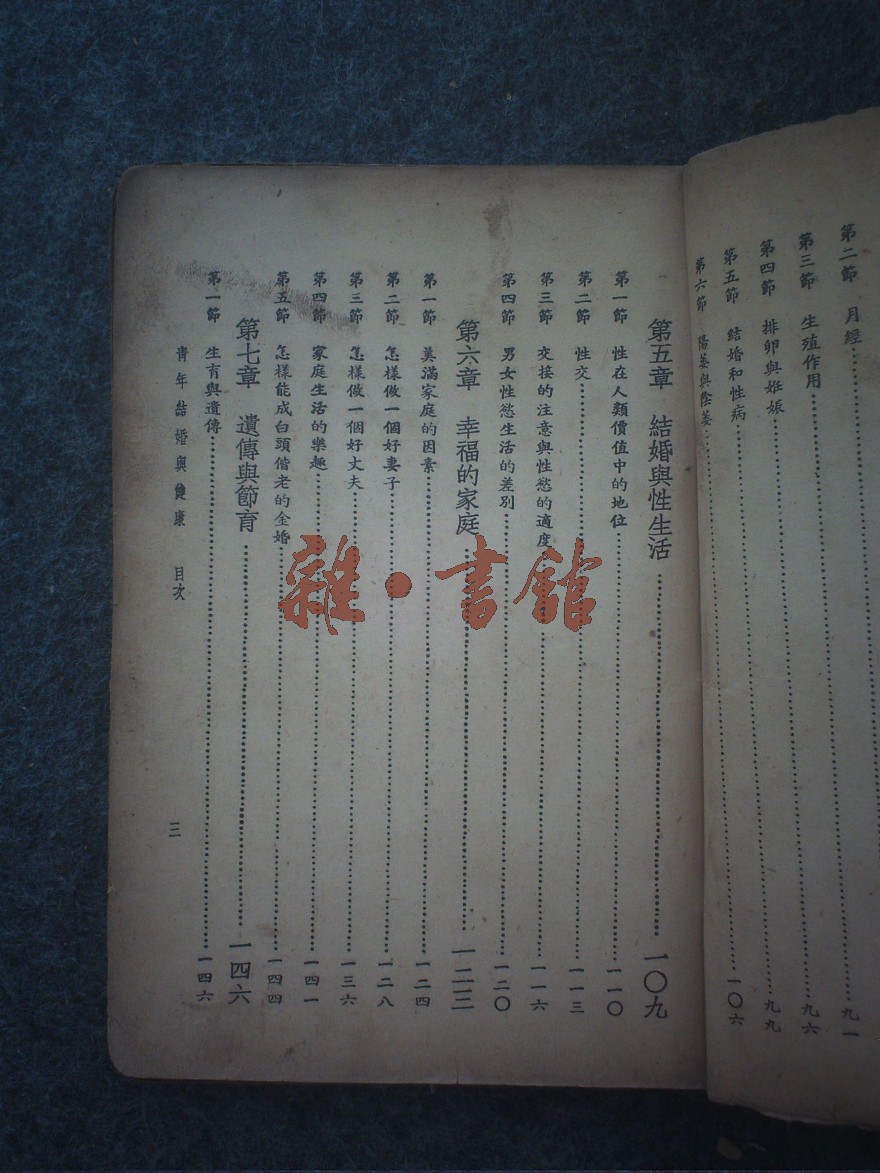 第二節　月經……九一
第三節　生殖作用……九六
第四節　排卵與妊娠……九九
第五節　結婚和性病……一〇六
第六節　陽萎與陰萎……
第五章　結婚與性生活……一〇九
第一節　性在人類價值中的地位……一一〇
第二節　性交……一一三
第三節　交接的注意與性慾的適度……一一六
第四節　男女性慾生活的差別……一二〇
第六章　幸福的家庭……一二三
第一節　美滿家庭的因素……一二四
第二節　怎樣做一個好妻子……一二八
第三節　怎樣做一個好丈夫……一三六
第四節　家庭生活的樂趣……一四一
第五節　怎樣能成白頭偕老的金婚……一四四
第七章　遺傳與節育……一四六
第一節　生育與遺傳……一四六
青年結婚與健康　目次
三
雜·書館